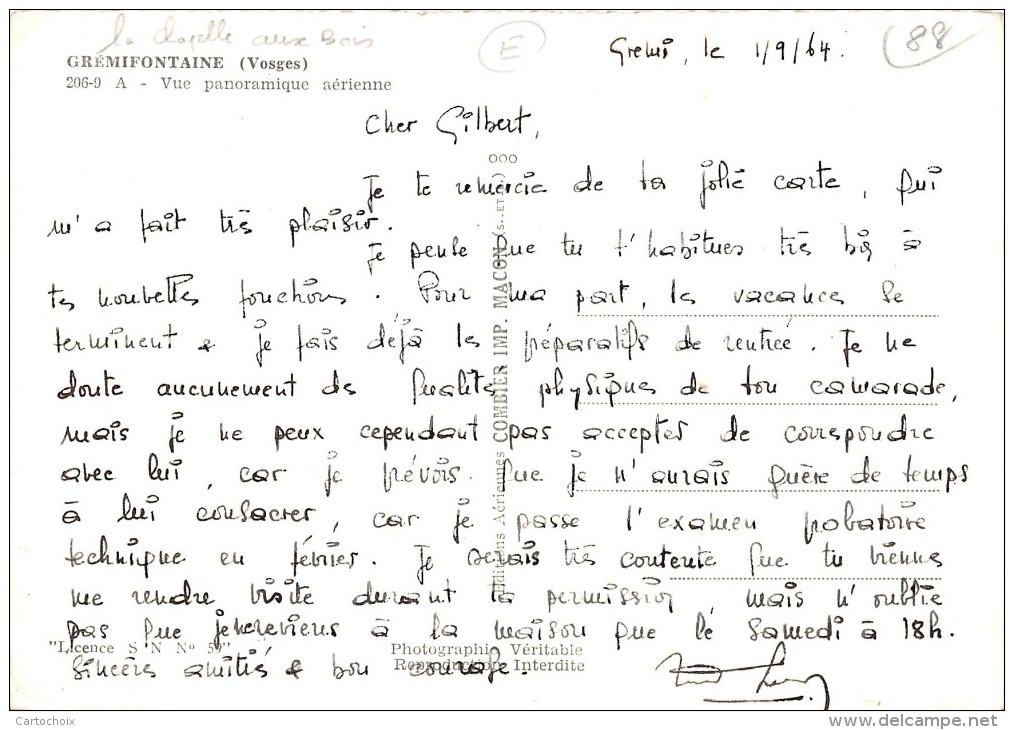 la Chapelle aux Bois
GRÉMIFONTAINE (Vosges)
206-9 A - Vue panoramique aérienne
E
Gremi, le 1/9/64.
88
Cher Gilbert,
Je te remercie de ta jolie carte, qui
m'a fait très plaisir.
Je pense que tu t'habitues très bien à
tes nouvelles fonctions. Pour ma part, les vacances se
terminent & je fais déjà les préparatifs de rentrée. Je ne
doute aucunement des qualités physiques de ton camarade,
mais je ne peux cependant pas accepter de correspondre
avec lui, car je prévois que je n'aurais guère de temps
à lui consacrer, car je passe l'examen probatoire
technique en février. Je serais très contente que tu viennes
me rendre visite durant ta permission, mais n'oublie
pas que je ne reviens à la maison que le samedi à 18h.
Sincères amitiés & bon courage.
"Licence S N N° 5
Photographie Véritable
Reproduction Interdite
Editions Aériennes COMBIER IMP. MACON (S.-ET-
Cartochoix
www.delcampe.net